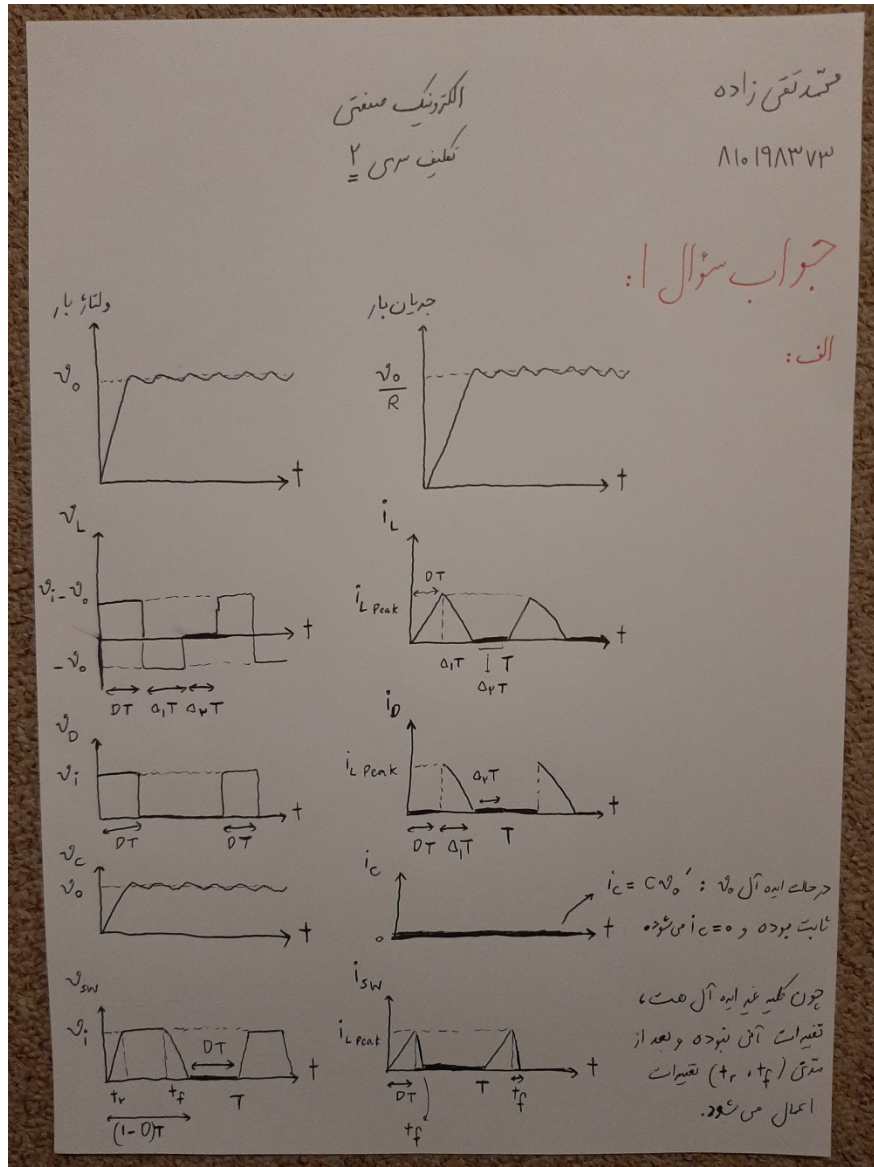 محمّد تقی زاده
الکترونیک صنعتی
۸۱۰۱۹۸۳۷۳
تکلیف سری ۲
جواب سؤال ۱:
الف:
ولتاژ بار
v₀
t
جریان بار
v₀/R
t
v_L
vᵢ-v₀
-v₀
t
DT Δ₁T Δ₂T
i_L
DT
i_L Peak
t
Δ₁T T
Δ₂T
v_D
vᵢ
t
DT DT
i_D
i_L Peak
Δ₂T
t
DT Δ₁T T
v_c
v₀
t
i_c
0
t
i_c = C v₀′ : در حالت ایده آل v₀
ثابت بوده و i_c=0 می‌شود.
v_sw
vᵢ
DT
t
t_r t_f T
(1-D)T
i_sw
i_L Peak
t
DT T t_f
t_f
چون کلید غیر ایده آل هست،
تغییرات آنی نبوده و بعد از
مدتی (t_r , t_f) تغییرات
اعمال می‌شود.